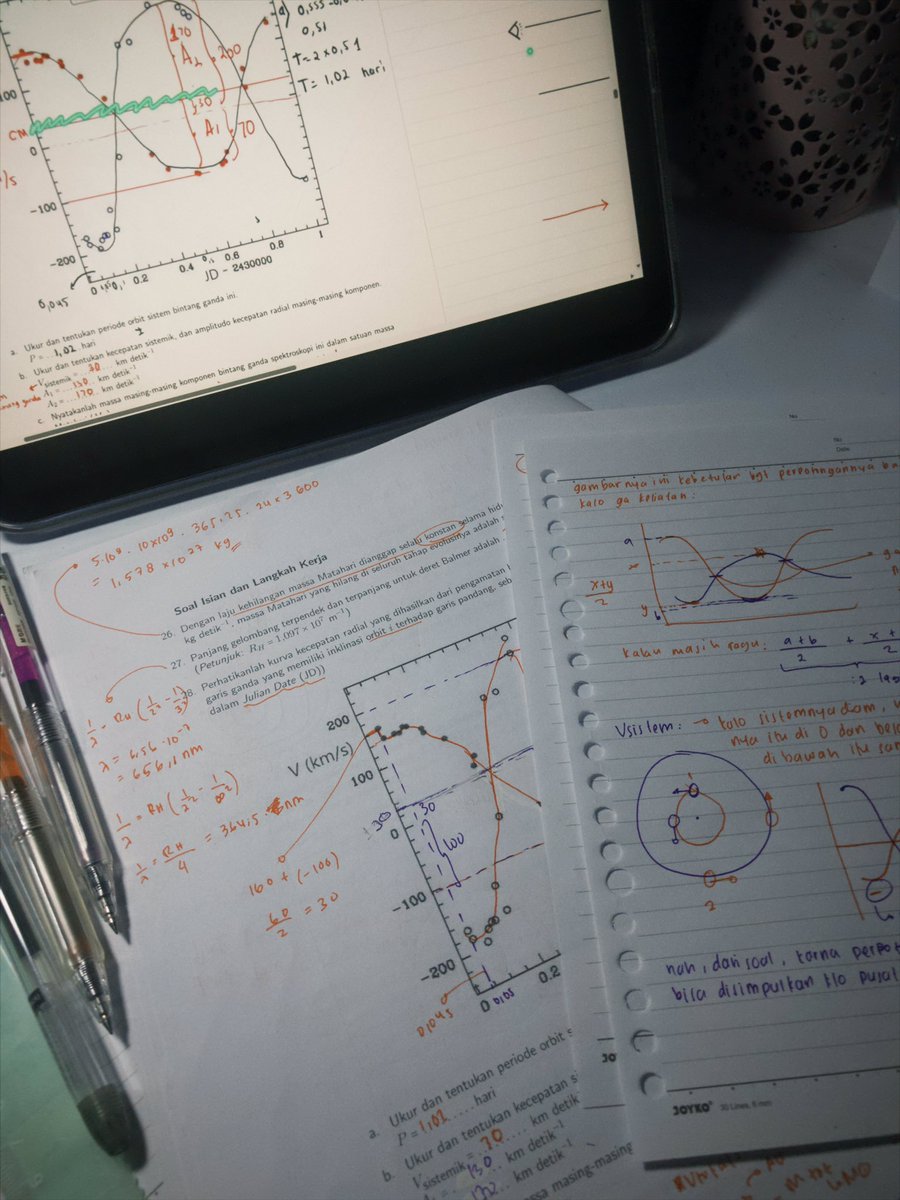 0,51
T=2×0,51
T= 1,02 hari
170
A2
200
130
A1
70
100
CM
0
-100
-200
0 0.2 0.4 0.6 0.8 1
JD - 2430000
0,045
a. Ukur dan tentukan periode orbit sistem bintang ganda ini.
P = ... 1,02 hari
b. Ukur dan tentukan kecepatan sistemik, dan amplitudo kecepatan radial masing-masing komponen.
Vsistemik = ... 30 ... km detik⁻¹
A1 = ... 130 .. km detik⁻¹
A2 = ... 170 km detik⁻¹
c. Nyatakanlah massa masing-masing komponen bintang ganda spektroskopi ini dalam satuan massa
5.10⁹ . 10×10⁹ . 365,25 . 24 × 3.600
= 1,578 × 10²⁷ kg
Soal Isian dan Langkah Kerja
26. Dengan laju kehilangan massa Matahari dianggap selalu konstan selama
kg detik⁻¹, massa Matahari yang hilang di seluruh tahap evolusinya adalah
27. Panjang gelombang terpendek dan terpanjang untuk deret Balmer adalah
(Petunjuk: RH = 1,097 × 10⁷ m⁻¹)
28. Perhatikanlah kurva kecepatan radial yang dihasilkan dari pengamatan
garis ganda yang memiliki inklinasi orbit i terhadap garis pandang,
dalam Julian Date (JD))
1/λ = RH (1/2² - 1/3²)
λ = 6,56 . 10⁻⁷
= 656,1 nm
1/λ = RH (1/2² - 1/∞²)
1/λ = RH/4 = 364,5 nm
160 + (-100)
60/2 = 30
V (km/s)
200
100
0
-100
-200
30
30
100
0 0,05 0.2
0,045
a. Ukur dan tentukan periode orbit
P = 1,02 .... hari
b. Ukur dan tentukan kecepatan
Vsistemik = 30 .... km detik
130 ... km detik⁻¹
170 ... km detik⁻¹
massa masing-masing
No
Date
gambarnya ini kebetulan bgt perpotingannya
kalo ga keliatan:
a
x
x+y/2
y
b
kalau masih ragu: a+b/2 + x+/2
: 2
Vsistem: → kalo sistemnya diam,
nya itu di 0 dan
di bawah itu
1
2
nah, dari soal, karna
bisa disimpulkan klo
JOYKO 30 Lines, 6 mm